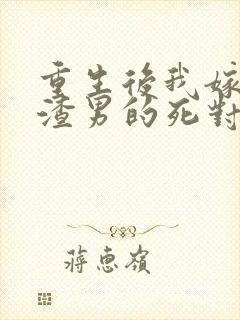 重生後我嫁
渣男的死對
蔣惠嶺